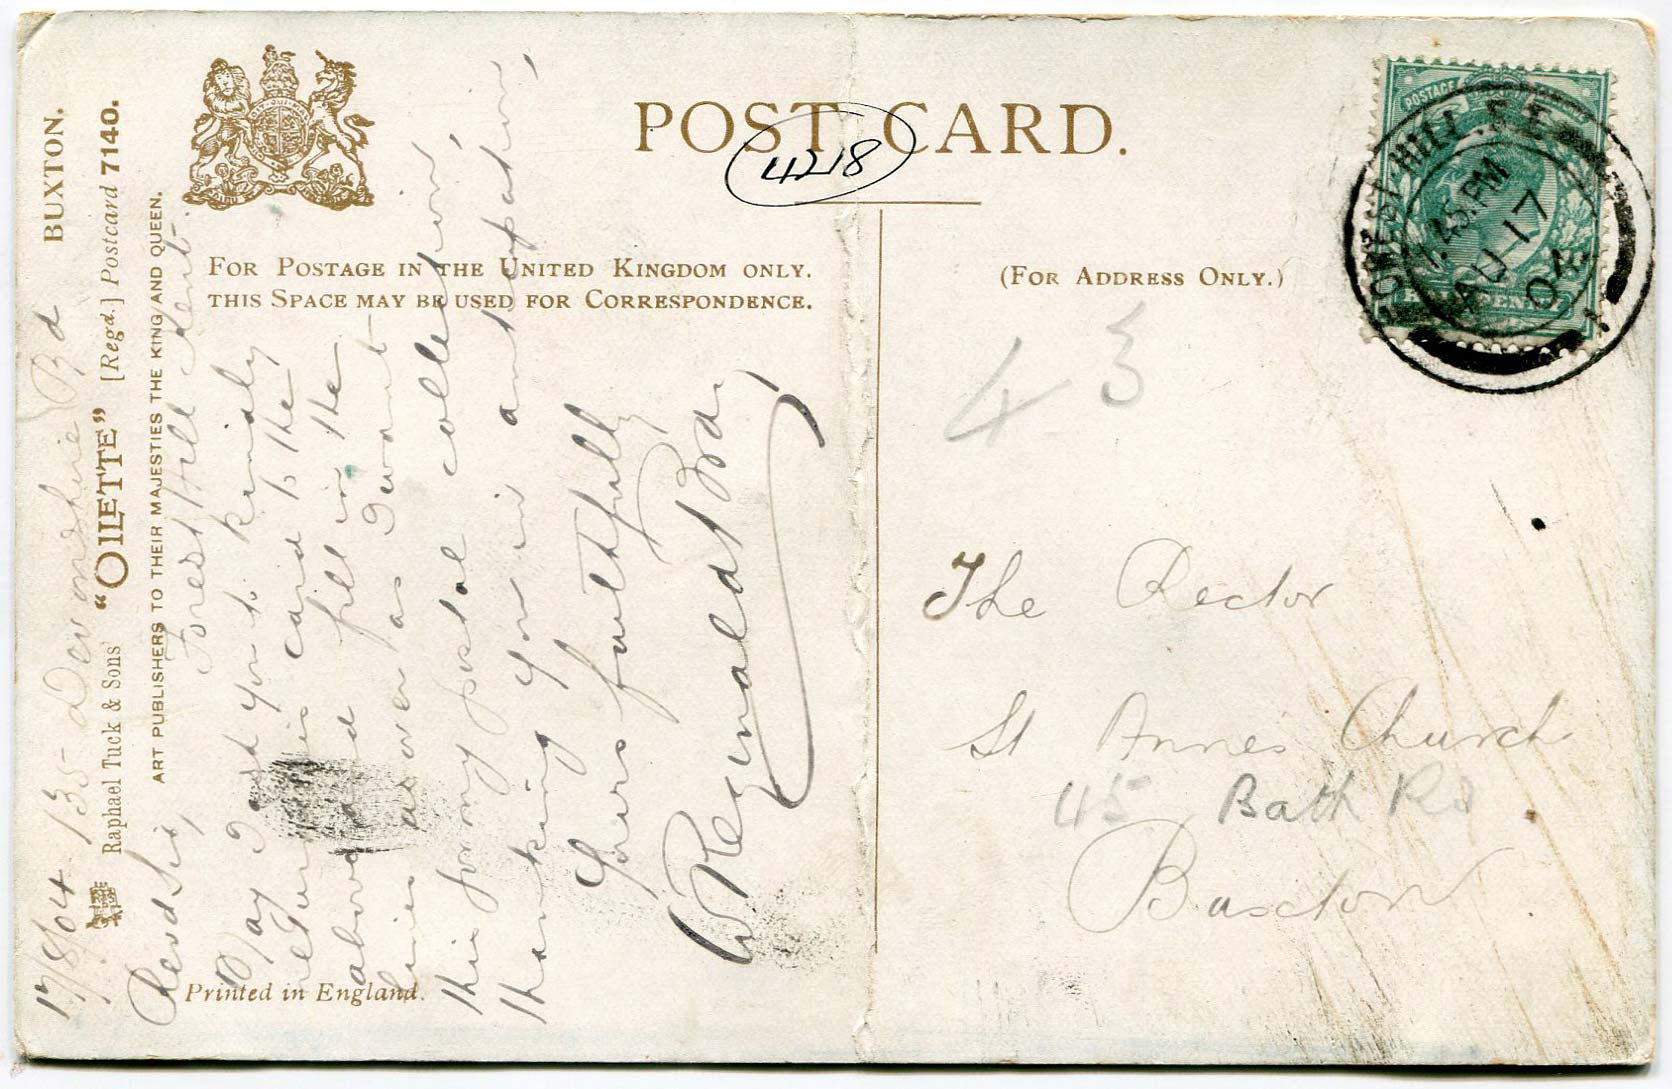 POST CARD.
4218
FOR POSTAGE IN THE UNITED KINGDOM ONLY.
THIS SPACE MAY BE USED FOR CORRESPONDENCE.
(FOR ADDRESS ONLY.)
BUXTON.
Raphael Tuck & Sons' "OILETTE" [Regd.] Postcard 7140.
ART PUBLISHERS TO THEIR MAJESTIES THE KING AND QUEEN.
Printed in England.
17/8/04. 135 Devonshire Rd
Forest Hill Kent.
Revd Sir,
May I ask you to kindly
return this card to the
above and fill in the
lines above as I want
this for my postal collection,
thanking you in anticipation,
Yours faithfully
W Reginald Bray
FOREST HILL S.E.
1.45.PM
AU 17
04
POSTAGE
HALFPENNY
4 3
The Rector
St Annes Church
45 Bath Rd
Buxton